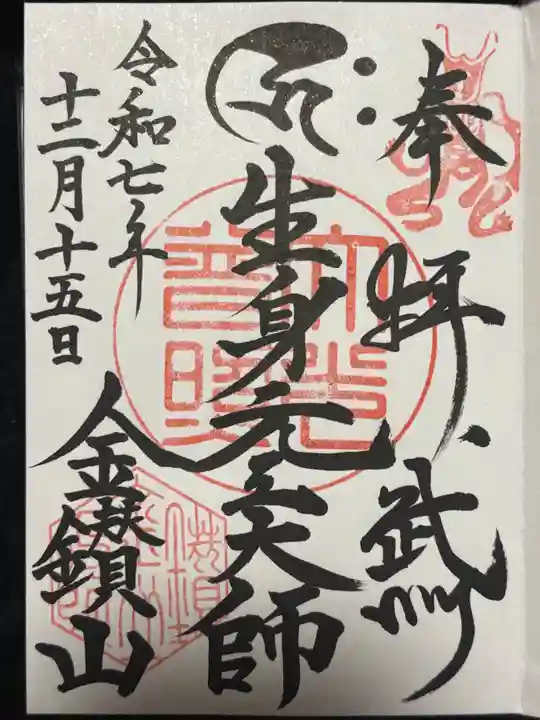 奉拝 武州
生身元三大師
令和七年
十二月十五日
金鑚山
大光
普照